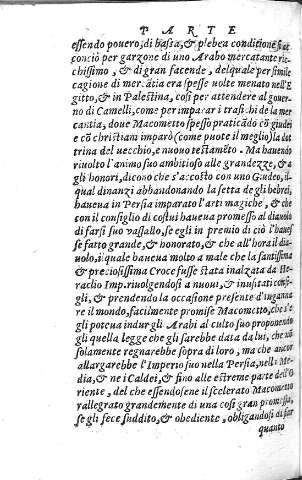 PARTE
essendo pouero, di bassa, & plebea conditione s'ac
conciò per garzone di uno Arabo mercatante ric-
chissimo, & di gran facende, del quale per simile
cagione di mercātia era spesse uolte menato nell'E
gitto, & in Palestina, così per attendere al gouer-
no di Camelli, come per imparar i trafichi de la mer
cantia, doue Macometto spesso praticādo cō giudei
e cō christiani imparò (come puote il meglio) la dot
trina del uecchio, e nuouo testamēto. Ma hauendo
riuolto l'animo suo ambitioso alle grandezze, & a
gli honori, dicono che s'accosto con uno Giudeo, il
qual dinanzi abbandonando la setta de gli hebrei,
haueua in Persia imparato l'arti magiche, & che
con il consiglio di costui haueua promesso al diauolo
di farsi suo uassallo, se egli in premio di ciò l'haues
se fatto grande, & honorato, & che all'hora il dia-
uolo, il quale haueua molto a male che la santissima
& preciosissima Croce fusse stata inalzata da He-
raclio Imp. riuolgendosi a nuoui, & inusitati consi-
gli, & prendendo la occasione presente d'inganna
re il mondo, facilmente promise Macometto, che s'e
gli poteua indur gli Arabi al culto suo proponendo
gli quella legge che gli sarebbe data da lui, che nō
solamente regnarebbe sopra di loro, ma che ancor
allargarebbe l'Imperio suo nella Persia, nell
dia, & ne i Caldei, & fino alle estreme parte dell'O
riente, del che essendosene il scelerato Macometto
rallegrato grandemente di una così gran promissa,
se gli fece suddito, & obediente, obligandosi di far
quanto